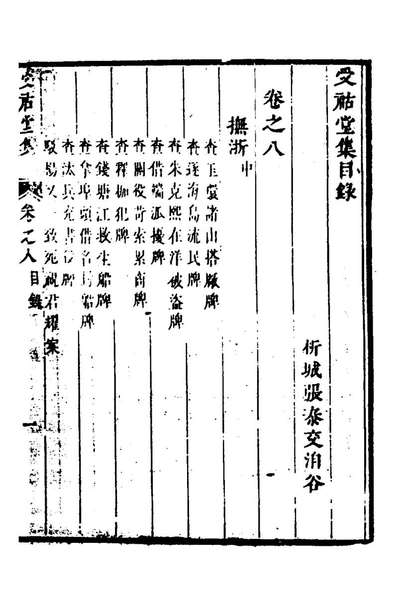 受祜堂集目錄
析城張泰交洎谷
卷之八
撫浙中
查玉裳諸山塔廠牌
查逐海島流民牌
查朱克熙在洋被盜牌
查借端派擾牌
查關役苛索累商牌
查釋枷犯牌
查錢塘江救生船牌
查拿埠頭借名封船牌
查汰兵充書役牌
駁楊又一致死祝君耀案
受祜堂集
卷之八目錄
一